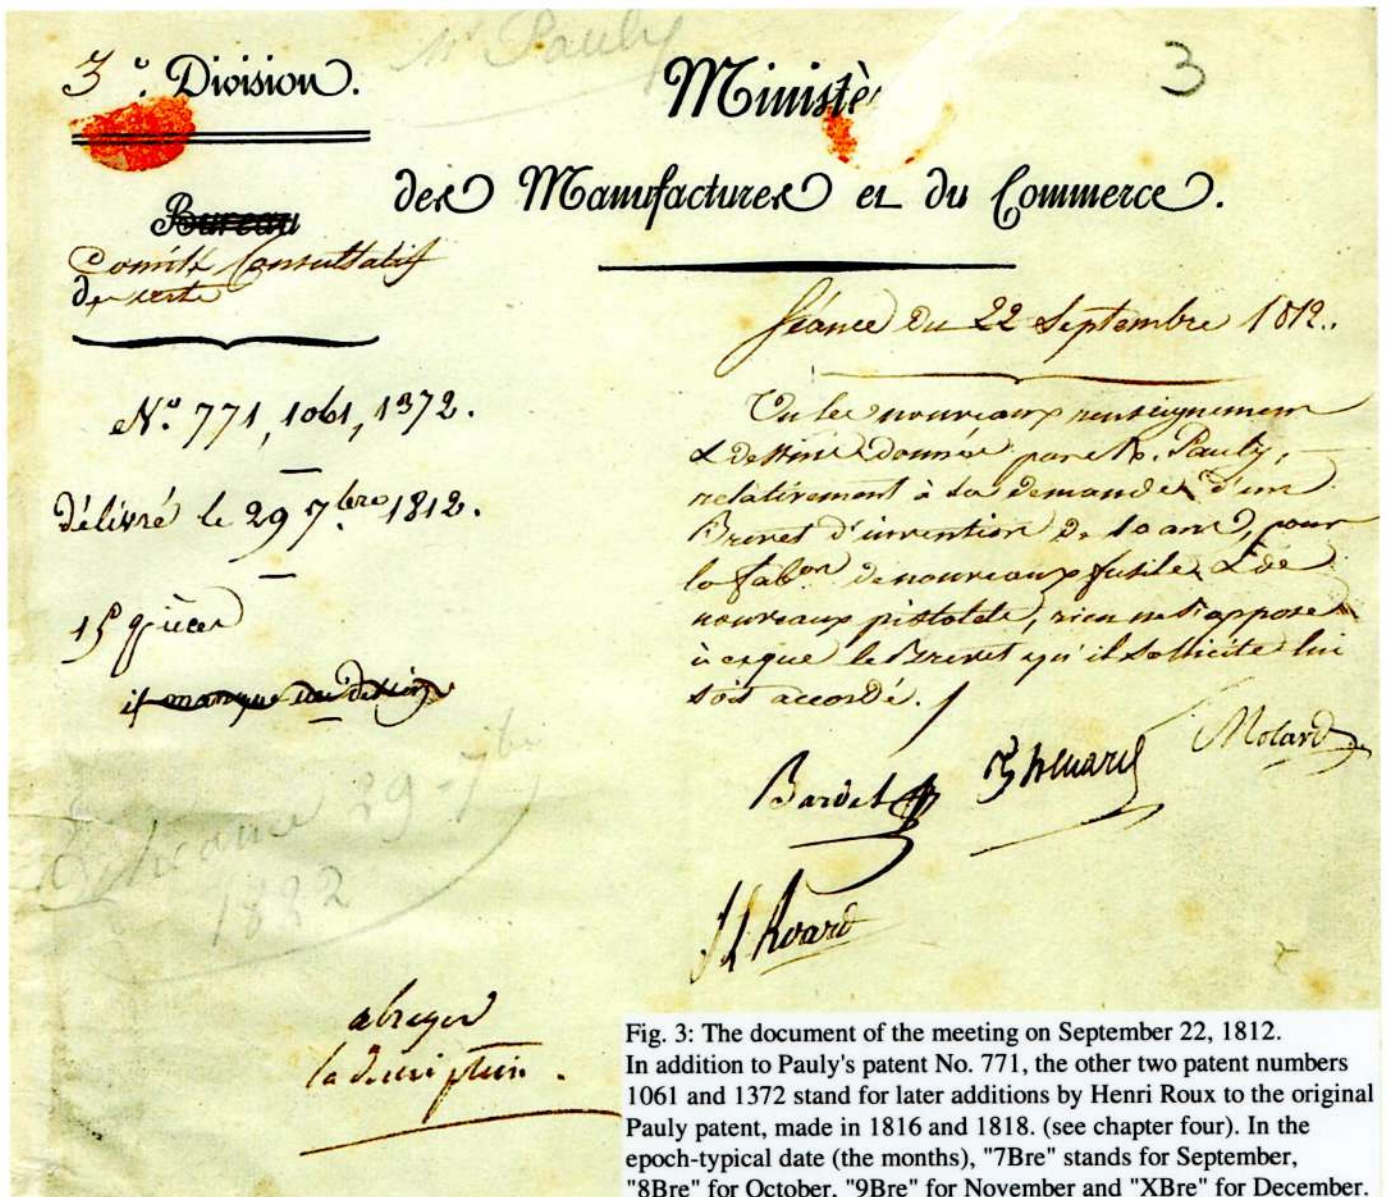 Mr Pauly
3
3e. Division.
Ministè
des Manufactures et du Commerce.
Bureau
Comité Consultatif
des arts
Séance du 22 Septembre 1812.
No. 771, 1061, 1372.
délivré le 29 7.bre 1812.
15 pièces
il manque un dessin
Vu les nouveaux renseignemens
& dessins donnés par Mr. Pauly,
relativement à sa demande d'un
Brevet d'invention de 10 ans, pour
la fabon de nouveaux fusils & de
nouveaux pistolets, rien ne s'oppose
à ce que le Brevet qu'il sollicite lui
soit accordé.
Bardel Thenard Molard
Roard
29 7bre
1822
abreger
la description.
Fig. 3: The document of the meeting on September 22, 1812.
In addition to Pauly's patent No. 771, the other two patent numbers
1061 and 1372 stand for later additions by Henri Roux to the original
Pauly patent, made in 1816 and 1818. (see chapter four). In the
epoch-typical date (the months), "7Bre" stands for September,
"8Bre" for October, "9Bre" for November and "XBre" for December.